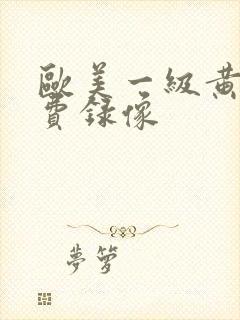 歐美一級黃
費錄像
夢箩